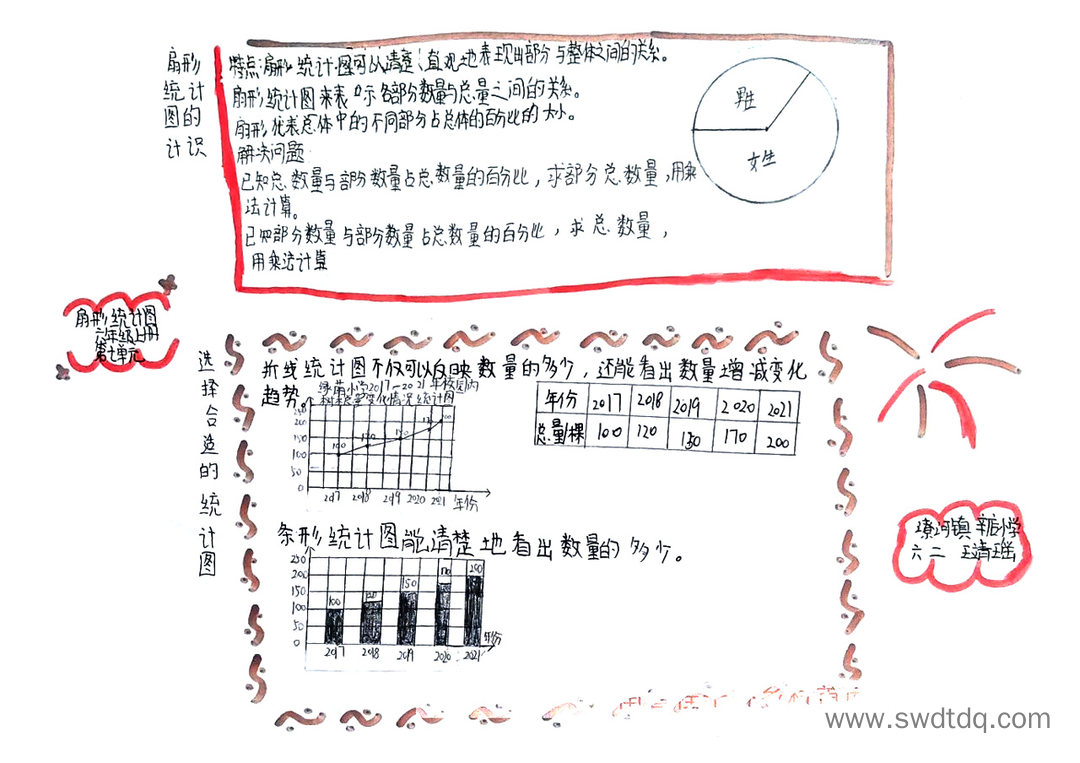 扇形
统计
图的
计识
特点:扇形统计图可以清楚、直观地表现出部分与整体之间的关系。
扇形统计图来表示各部分数量与总量之间的关系。
扇形代表总体中的不同部分占总体的百分比的大小。
解决问题
已知总数量与部分数量占总数量的百分比，求部分总数量，用乘
法计算。
已知部分数量与部分数量占总数量的百分比，求总数量，
用乘法计算
男生
女生
扇形统计图
六年级上册
第七单元
选择合适的统计图
折线统计图不仅可以反映数量的多少，还能看出数量增减变化
趋势。
250
200
150
100
50
0
100
120
150
170
200
2017 2018 2019 2020 2021 年份
年份 2017 2018 2019 2020 2021
总量/棵 100 120 150 170 200
条形统计图能清楚地看出数量的多少。
250
200
150
100
50
0
100
120
150
170
200
2017 2018 2019 2020 2021 年份
六二
www.swdtdq.com